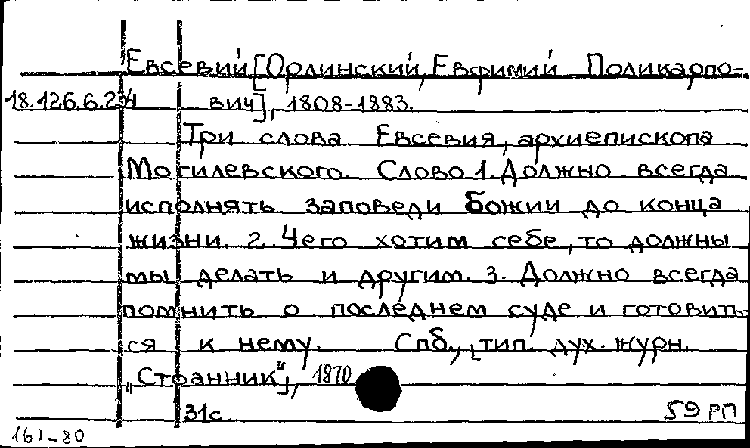 Евсевий [Орлинский, Евфимий Поликарпо-
18.126.6.234 вич], 1808-1883.
Три слова Евсевия, архиепископа
Могилевского. Слово 1. Должно всегда
исполнять заповеди Божии до конца
жизни. 2. Чего хотим себе, то должны
мы делать и другим. 3. Должно всегда
помнить о последнем суде и готовить-
ся к нему. Спб., [тип. дух. журн.
"Странник"], 1870
31с. 59 РП
161-80